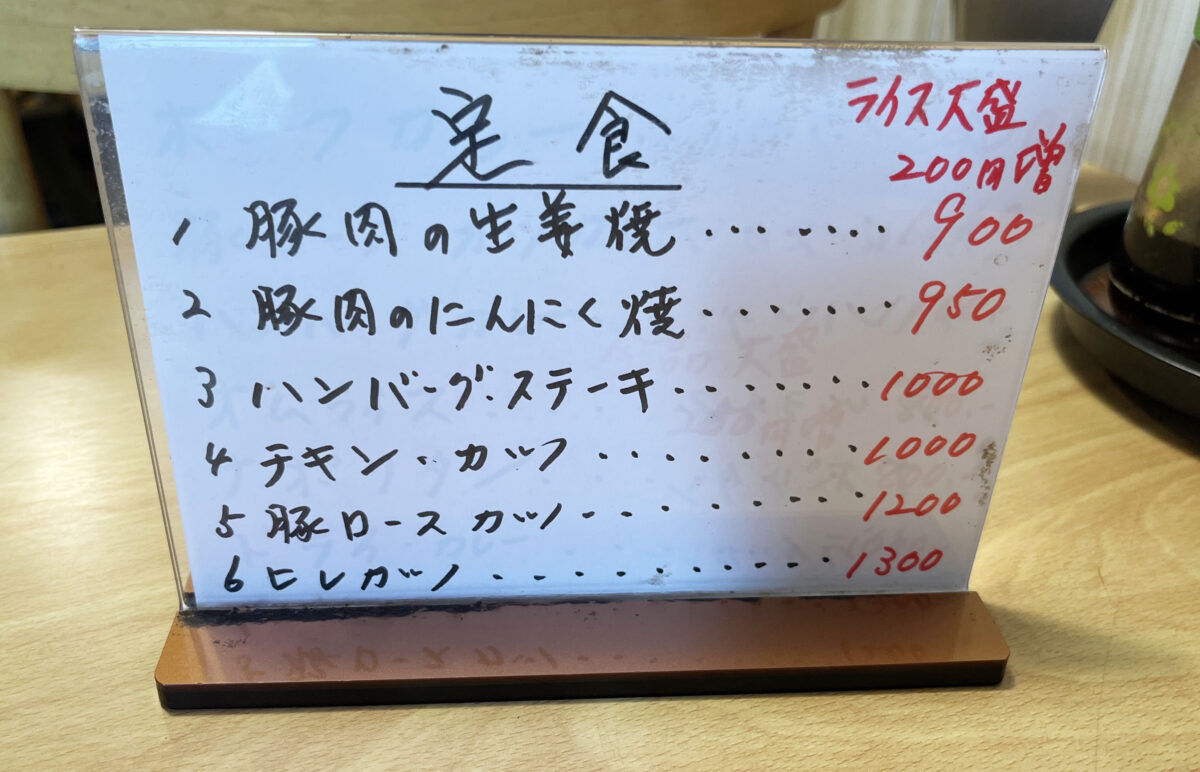 定食
ライス大盛
200円増
1 豚肉の生姜焼 ‥‥ ‥‥ 900
2 豚肉のにんにく焼 ‥‥‥‥ 950
3 ハンバーグ・ステーキ ‥‥‥‥ 1000
4 チキン・カツ ‥‥‥‥ 1000
5 豚ロースカツ ‥‥‥‥ 1200
6 ヒレカツ ‥‥‥‥‥ 1300